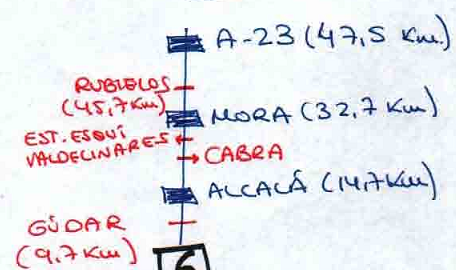 A-23 (47,5 Km.)
RUBIELOS
(45,7Km)
MORA (32,7 Km)
EST. ESQUÍ
VALDELINARES
CABRA
ALCALÁ (14,7Km)
GÚDAR
(9,7 Km)
6